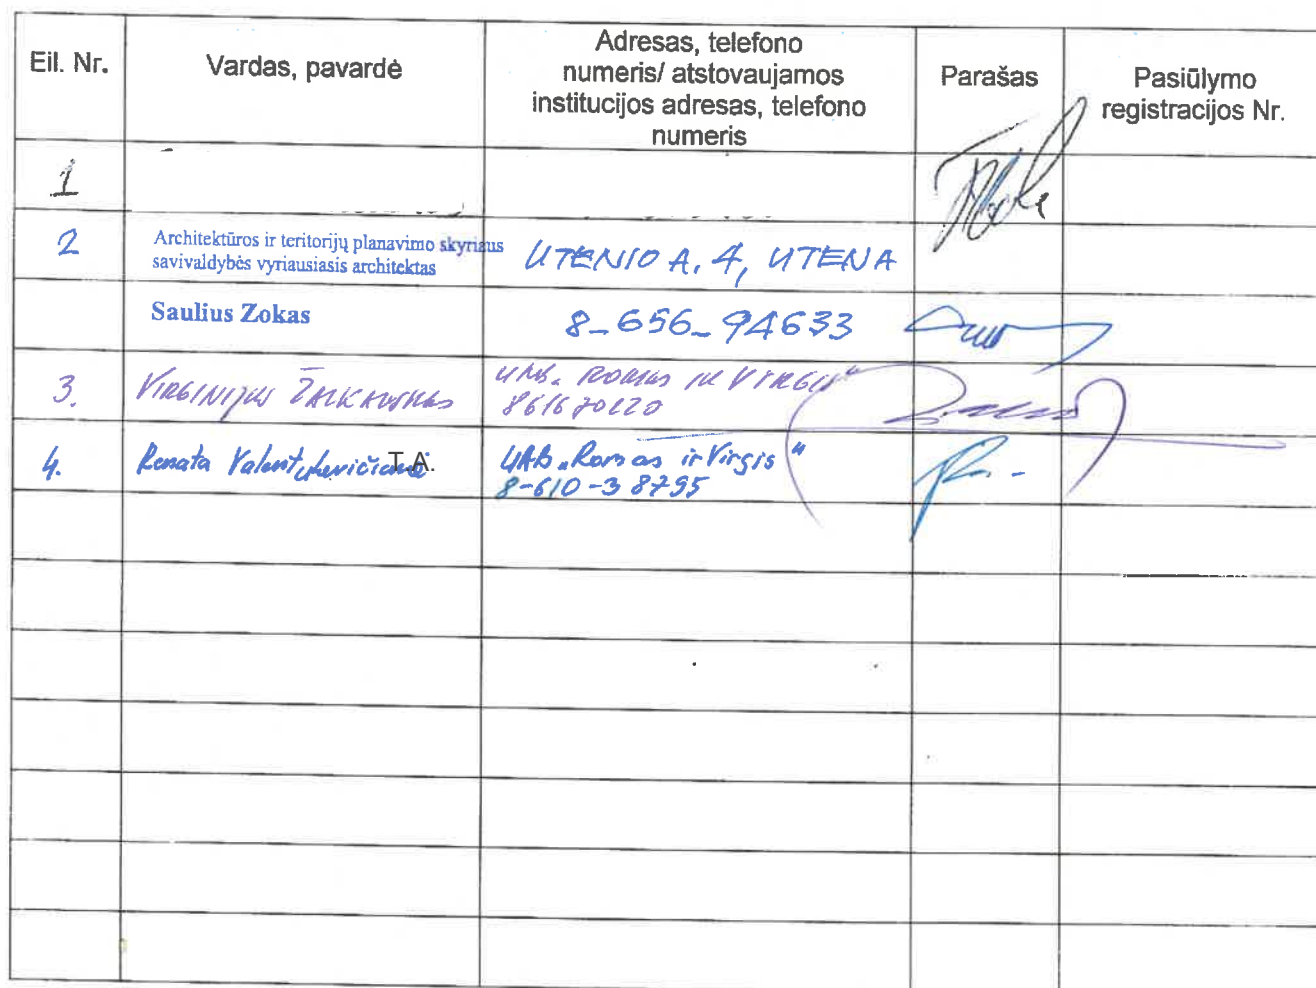 Eil. Nr.
Vardas, pavardė
Adresas, telefono
numeris/ atstovaujamos
institucijos adresas, telefono
numeris
Parašas
Pasiūlymo
registracijos Nr.
1
2
Architektūros ir teritorijų planavimo skyriaus
savivaldybės vyriausiasis architektas
UTENIO A. 4, UTENA
Saulius Zokas
8-656-94633
3.
VIRGINIJUS
UAB „ROMAS IR VIRGIS"
861670220
4.
Renata
T.A.
UAB „Romas ir Virgis"
8-610-38795